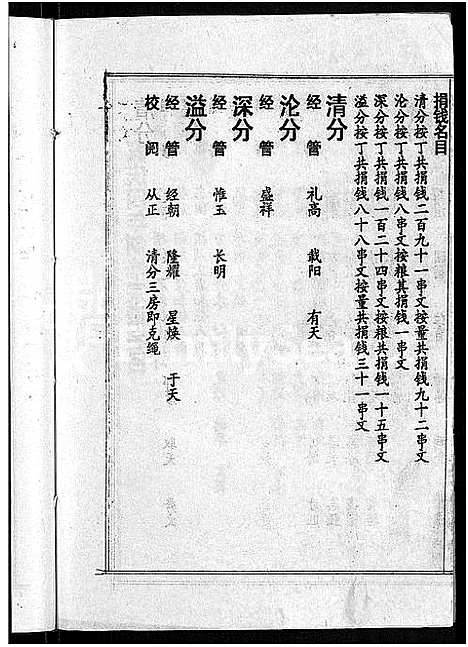 捐钱名目
清分按丁共捐钱二百九十一串文按量共捐钱九十二串文
沦分按丁共捐钱八串文按粮其捐钱一串文
深分按丁共捐钱一百二十四串文按粮共捐钱一十五串文
溢分按丁共捐钱八十八串文按量共捐钱三十一串文
清分
经管 礼高 载阳 有天
沦分
经管 盛祥
深分
经管 惟玉 长明
溢分
经管 经朝 隆耀 星焕 于天
校阅 从正 清分三房即克绳